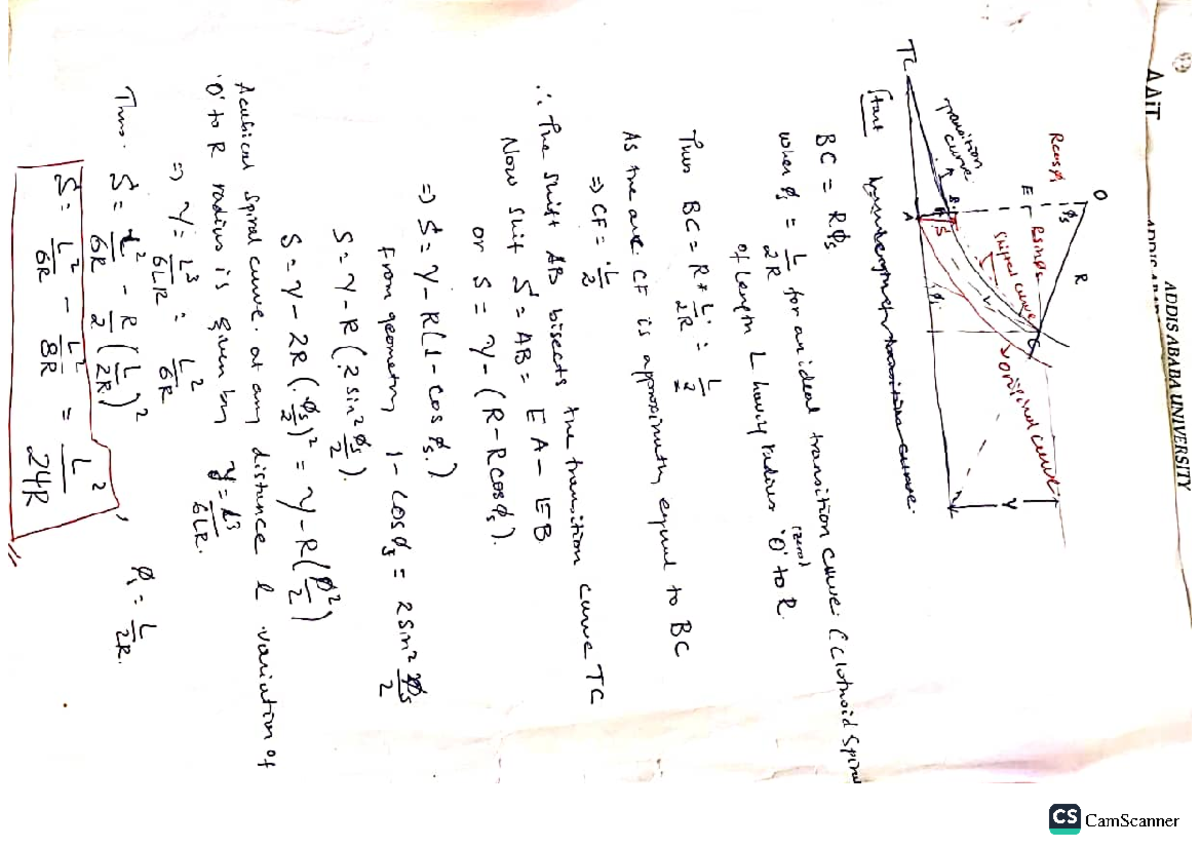 ADDIS ABABA UNIVERSITY
AAiT
O
R
φs
Rcosφs
E
Rsinφs
Shifted curve
original curve
C
Y
B
S
F
A
Transition curve
TC
Start
BC = Rφs
when φs = L/2R for an ideal transition curve (Clothoid Spiral
of length L having radius '0' to R.
(zero)
Thus BC = R * L/2R = L/2
As the arc CF is approximately equal to BC
=> CF = L/2
∴ The shift AB bisects the transition curve TC
Now shift S = AB = EA - EB
or S = Y - (R - Rcosφs).
=> S = Y - R(1 - cosφs)
from geometry 1 - cosφs = 2sin² φs/2
S = Y - R(2sin² φs/2).
S = Y - 2R(φs/2)² = Y - R(φ²/2)
A cubical spiral curve at any distance l variation of
'0' to R radius is given by y = l³/6LR.
=> Y = L³/6LR = L²/6R
Thus S = L²/6R - R/2 (L/2R)² , φs = L/2R.
S = L²/6R - L²/8R = L²/24R
CS CamScanner